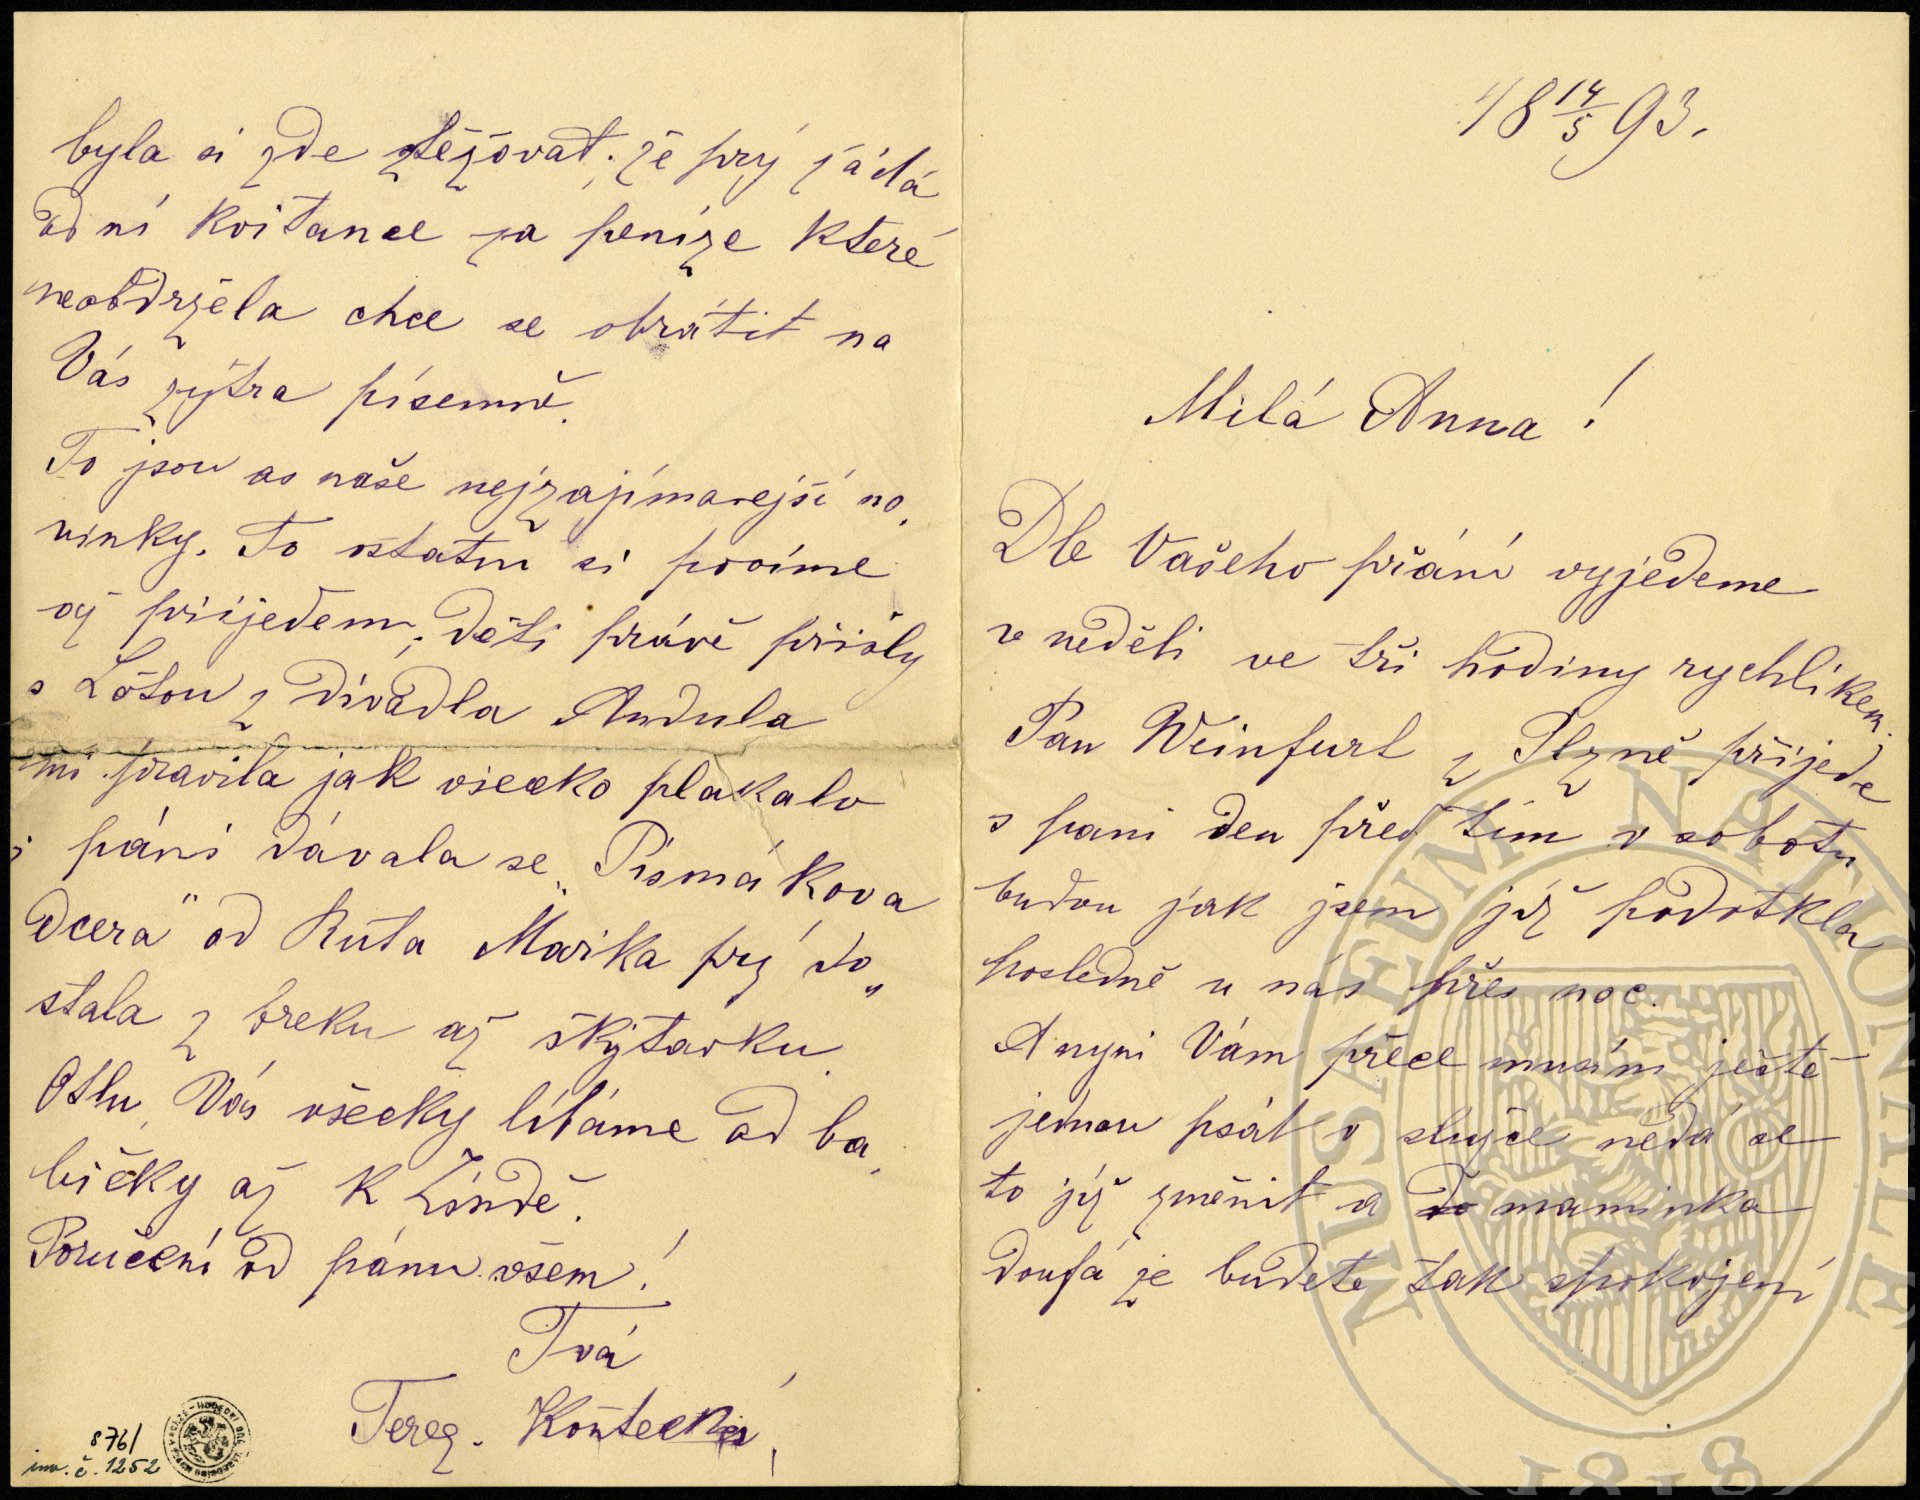 18 14/5 93.
Milá Anna!
Dle Vašeho přání vyjedeme
v neděli ve tři hodiny rychlíkem.
Pan Weinfurl z Plzně přijede
s paní den před tím v sobotu
budou jak jsem již podotkla
posledně u nás přes noc.
A nyni Vám přece musím ještě
jednou psát o služce nedá se
to již změnit a do maminka
doufá že budete tak spokojení
byla si zde stěžovat, že prý žádá
od ní kvitance za peníze které
neobdržela chce se obrátit na
Vás zýtra písemně.
To jsou as naše nejzajímavejší no„
vinky. To ostatní si povíme
až prijedem, děti právě přišly
s Lótou z divadla Andula
mi pravila jak všecko plakalo
i páni dávala se „Písmákova
dcera" od Ruta Marka prý do„
stala z breku až škytavku.
Otlu, Vás všecky líbáme od ba„
bičky až k Lindě.
Poručení od pánu všem!
Tvá
Terez. Koštecká
876/
inv. č. 1252
MUSAEUM NATIONALE
1818